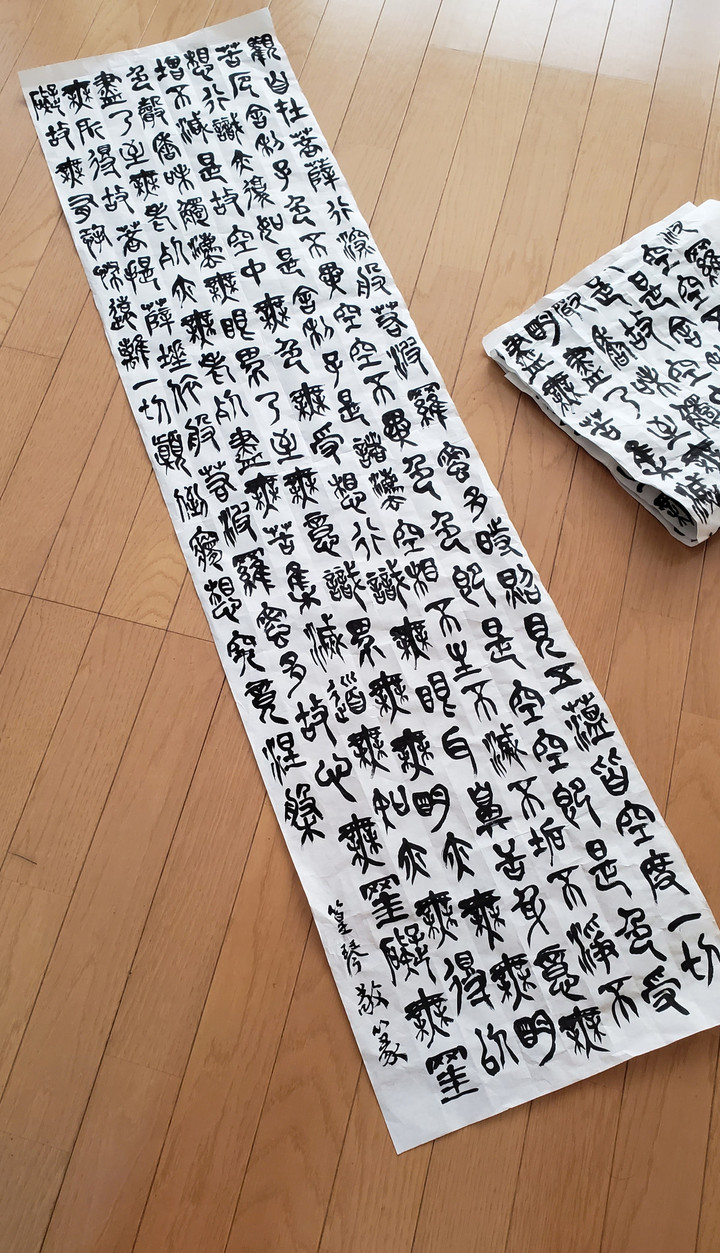 觀自在菩薩行深般若波羅蜜多時照見五蘊皆空度一切
苦厄舍利子色不異空空不異色色即是空空即是色受
想行識亦復如是舍利子是諸法空相不生不滅不垢不淨不
增不減是故空中無色無受想行識無眼耳鼻舌身意無
色聲香味觸法無眼界乃至無意識界無無明亦無無明
盡乃至無老死亦無老死盡無苦集滅道無知亦無得以
無所得故菩提薩埵依般若波羅蜜多故心無罣礙無罣
礙故無有恐怖遠離一切顛倒夢想究竟涅槃
篁琴敬篆